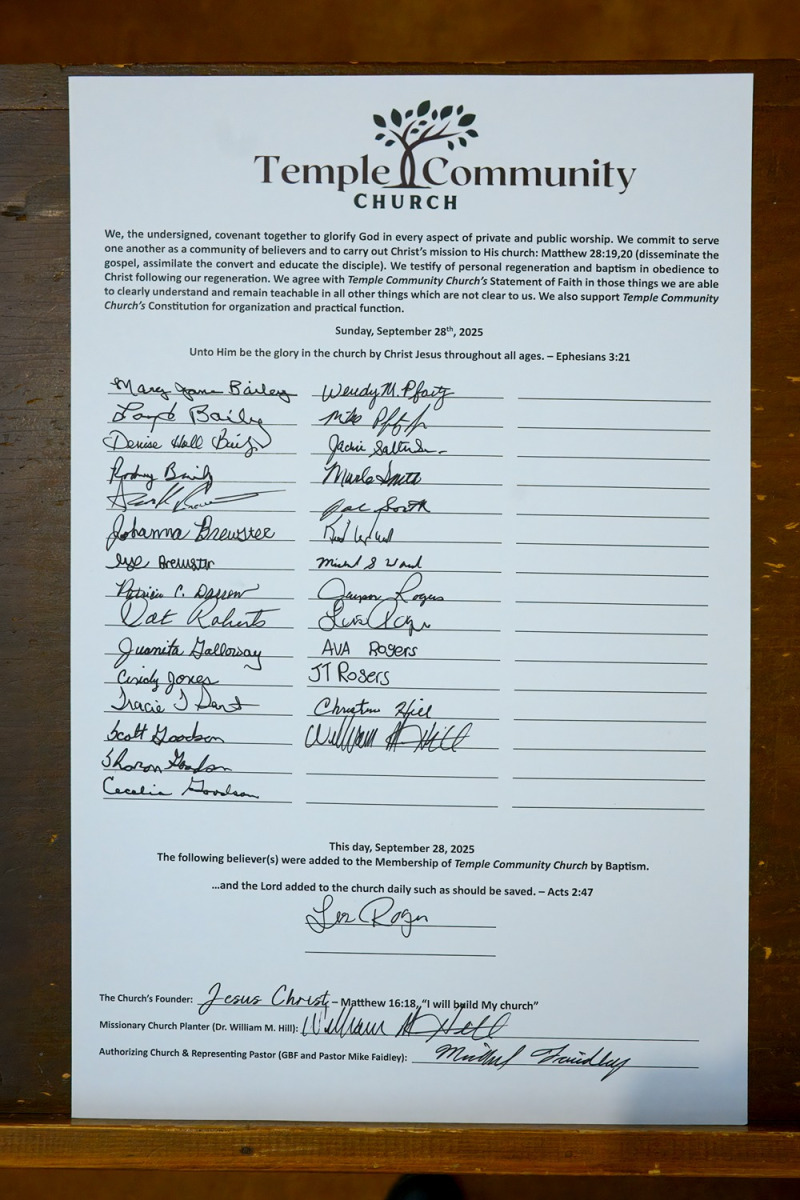 Temple Community
CHURCH
We, the undersigned, covenant together to glorify God in every aspect of private and public worship. We commit to serve
one another as a community of believers and to carry out Christ's mission to His church: Matthew 28:19,20 (disseminate the
gospel, assimilate the convert and educate the disciple). We testify of personal regeneration and baptism in obedience to
Christ following our regeneration. We agree with Temple Community Church's Statement of Faith in those things we are able
to clearly understand and remain teachable in all other things which are not clear to us. We also support Temple Community
Church's Constitution for organization and practical function.
Sunday, September 28th, 2025
Unto Him be the glory in the church by Christ Jesus throughout all ages. – Ephesians 3:21
Mary Jane Bailey
Bailey
Denise Hall
Rodney
Johanna Brewster
Brewster
Patricia C.
Pat Roberts
Juanita Galloway
Cindy Jones
Tracie J
Scott Goodson
Sharon Goodson
Cecelia Goodson
Wendy M. Pfautz
Mike
Jackie
Smith
Rogers
AVA Rogers
JT Rogers
Hill
William M Hill
This day, September 28, 2025
The following believer(s) were added to the Membership of Temple Community Church by Baptism.
...and the Lord added to the church daily such as should be saved. – Acts 2:47
The Church's Founder: Jesus Christ – Matthew 16:18, "I will build My church"
Missionary Church Planter (Dr. William M. Hill): William M Hill
Authorizing Church & Representing Pastor (GBF and Pastor Mike Faidley): Michael Faidley